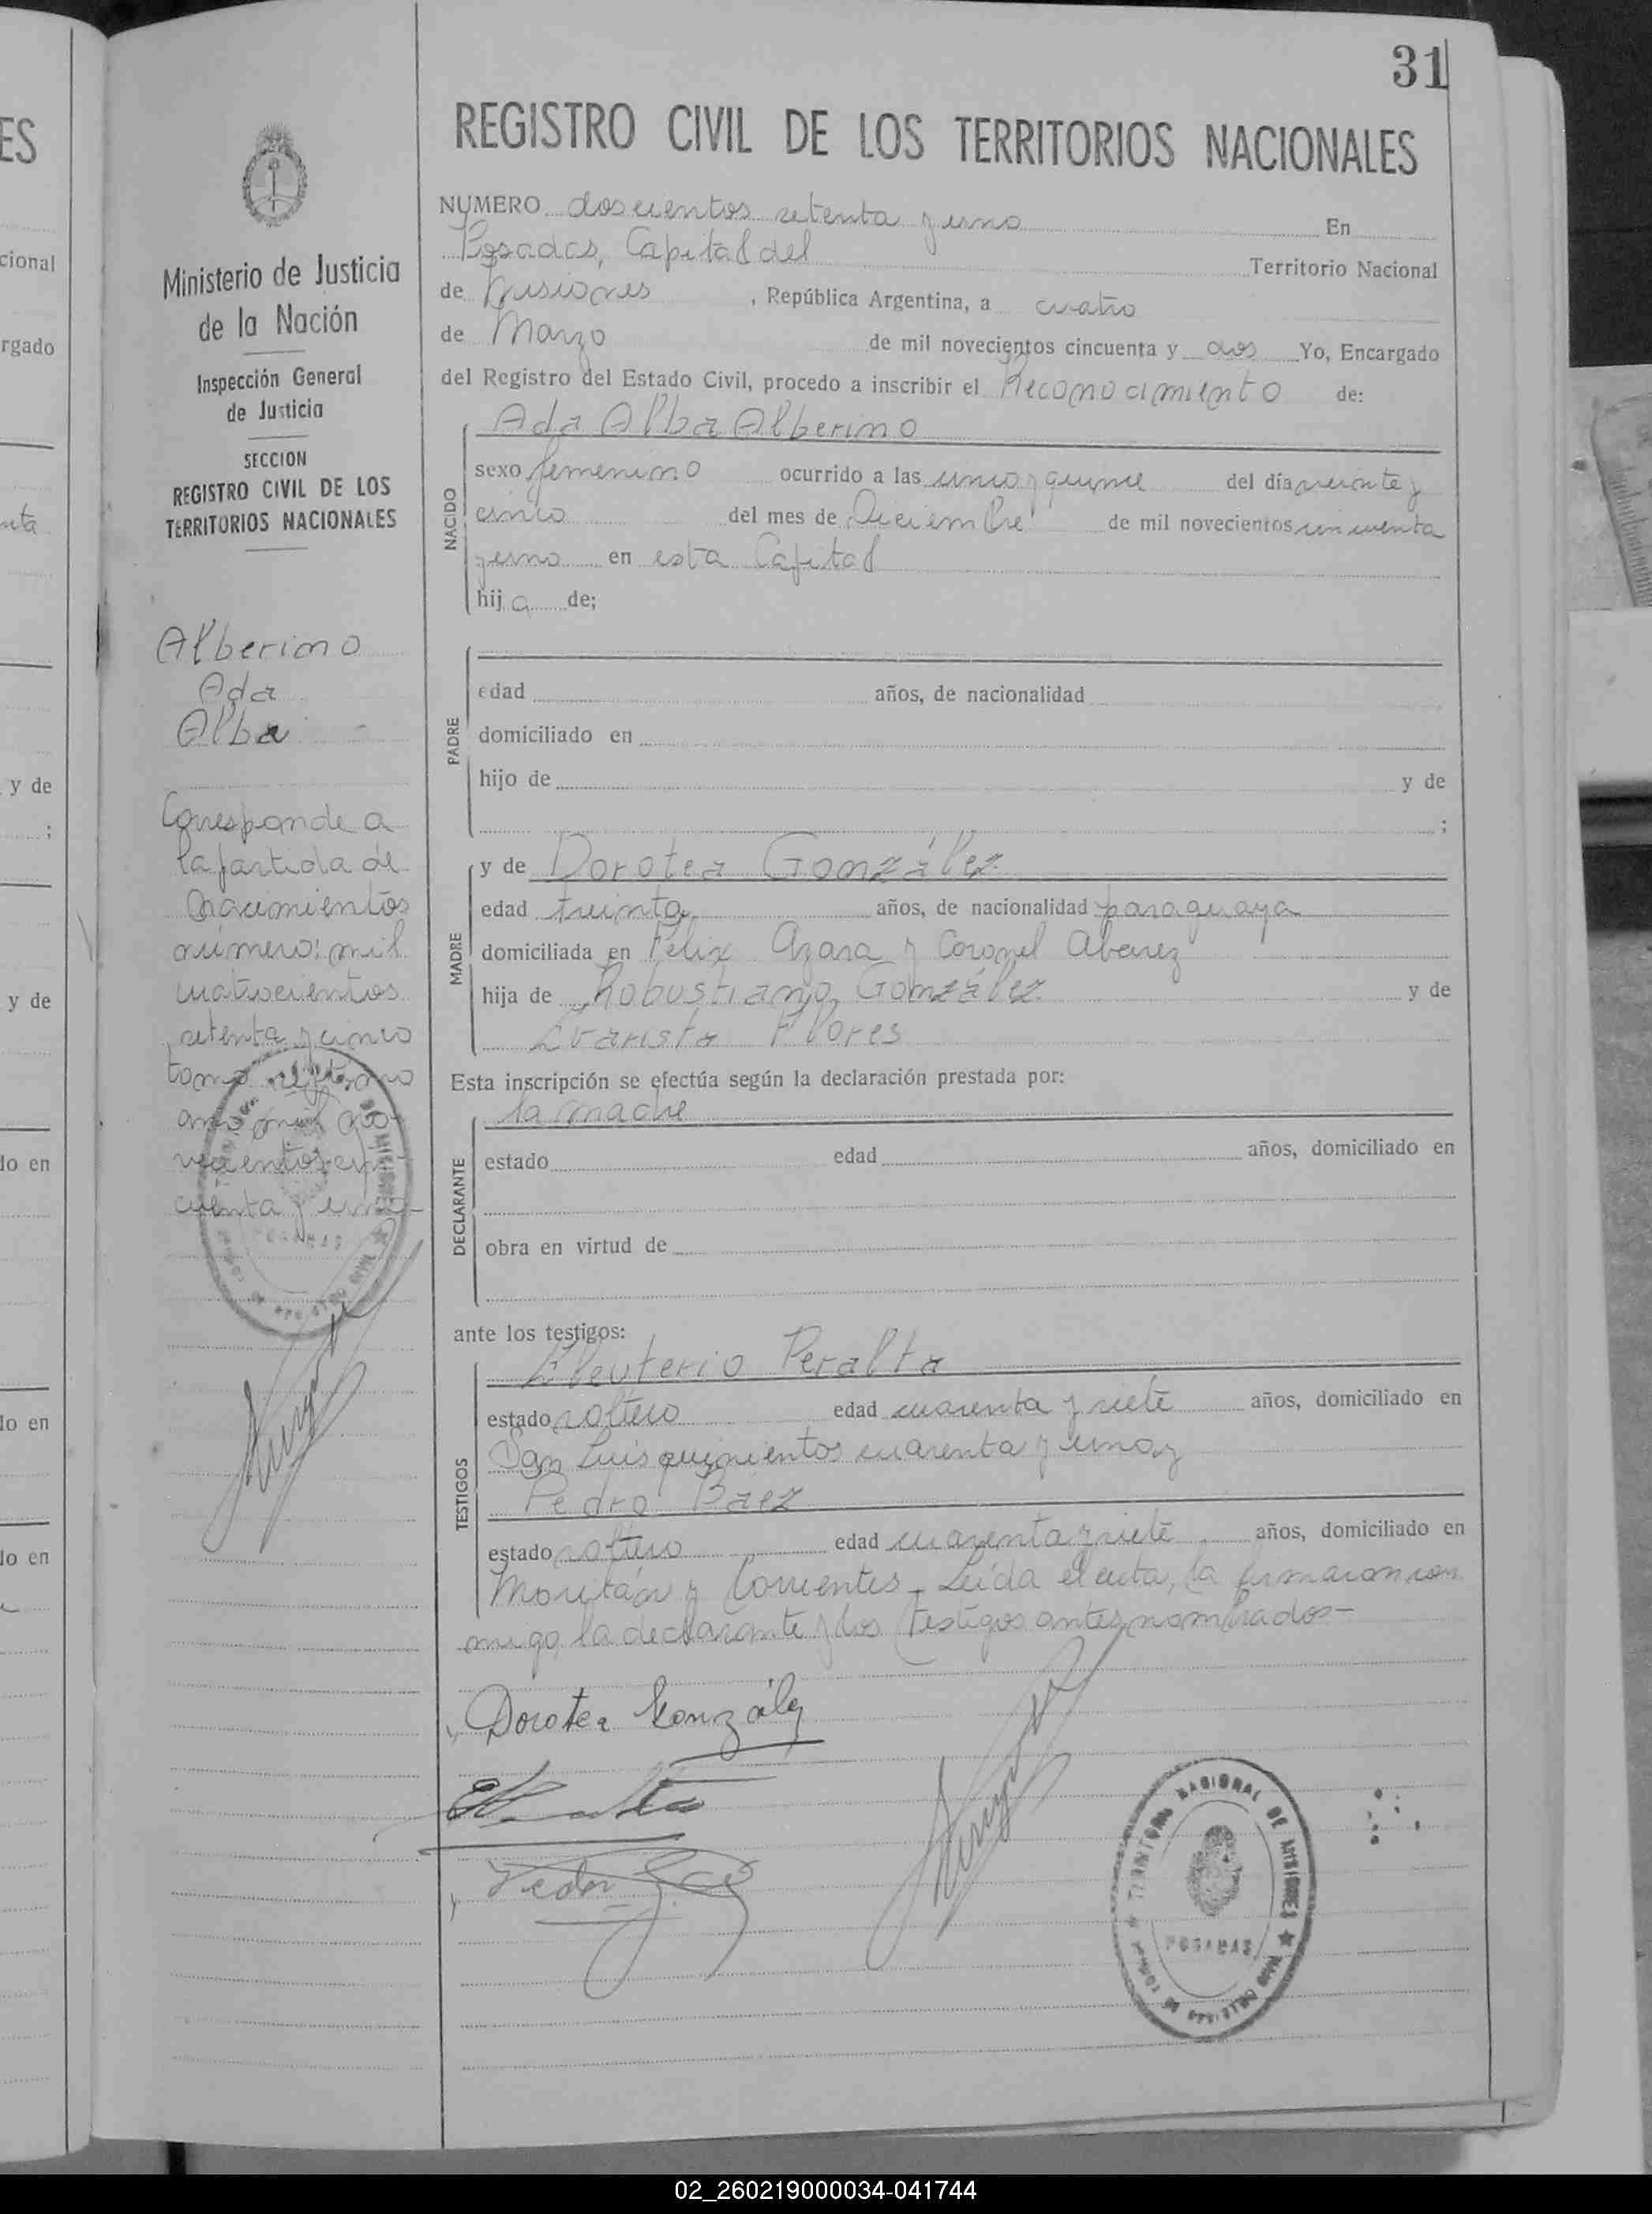 31
REGISTRO CIVIL DE LOS TERRITORIOS NACIONALES
NUMERO doscientos setenta y uno En
Posadas, Capital del Territorio Nacional
de Misiones, República Argentina, a cuatro
de Marzo de mil novecientos cincuenta y dos Yo, Encargado
del Registro del Estado Civil, procedo a inscribir el Reconocimiento de:
Ada Alba Alberino
NACIDO
sexo femenino ocurrido a las uno y quince del día veinte y
cinco del mes de Diciembre de mil novecientos cincuenta
y uno en esta Capital
hija de;
PADRE
edad años, de nacionalidad
domiciliado en
hijo de y de
;
MADRE
y de Dorotea González
edad treinta años, de nacionalidad paraguaya
domiciliada en Félix Azara y Coronel Alvarez
hija de Robustiano González y de
Evarista Flores
Esta inscripción se efectúa según la declaración prestada por:
la madre
DECLARANTE
estado edad años, domiciliado en
obra en virtud de
ante los testigos:
TESTIGOS
Eleuterio Peralta
estado soltero edad cuarenta y siete años, domiciliado en
San Luis quinientos cuarenta y uno y
Pedro Baez
estado soltero edad cuarenta y siete años, domiciliado en
Moritán y Corrientes - Leída el acta, la firmaron con
migo, la declarante y los testigos antes nombrados -
Dorotea González
TERRITORIO NACIONAL DE MISIONES
POSADAS
Ministerio de Justicia
de la Nación
Inspección General
de Justicia
SECCION
REGISTRO CIVIL DE LOS
TERRITORIOS NACIONALES
Alberino
Ada
Alba
Corresponde a
la partida de
Nacimientos
número: mil
cuatrocientos
setenta y cinco
tomo septimo
año mil no-
vecientos cin
cuenta y uno-
ES
cional
rgado
nta
y de
;
y de
do en
do en
do en
02_260219000034-041744